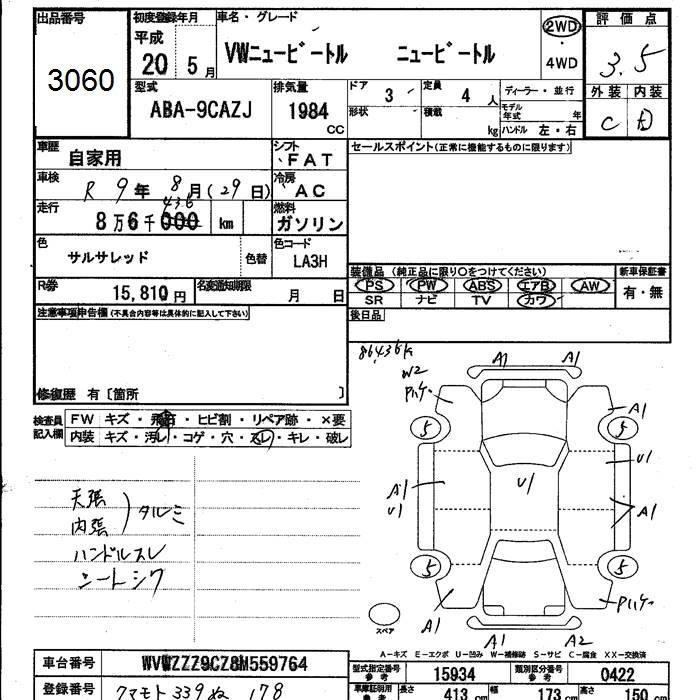 出品番号
3060
初度登録年月
平成
20 5月
車名・グレード
VWニュービートル ニュービートル
2WD
・
4WD
評価点
3.5
外装 内装
C D
型式
ABA-9CAZJ
排気量
1984
CC
ドア
3
定員
4 人
ディーラー・並行
形状
積載
kg
モデル年式 年
ハンドル 左・右
車歴
自家用
シフト
FAT
車検
R 9年 8月(29日)
冷房
AC
走行
436
8万6千000 km
燃料
ガソリン
色
サルサレッド
色替
色コード
LA3H
R券
15,810円
名変通知期限
月 日
セールスポイント(正常に機能するものに限ります)
装備品(純正品に限り○をつけてください)
新車保証書
PS PW ABS エアB AW
SR ナビ TV カワ
有・無
後日品
注意事項申告欄(不具合内容等は具体的に記入して下さい)
修復歴 有〔箇所 〕
検査員記入欄
FW キズ・飛石・ヒビ割・リペア跡・×要
内装 キズ・汚レ・コゲ・穴・スレ・キレ・破レ
天張
内張
タルミ
ハンドルスレ
シートシワ
86436k
W2
Pハゲ
A1
A1
A1
5
5
U1
U1
A1
U1
A1
5
5
Pハゲ
A1
A1
A2
スペア
A-キズ E-エクボ U-凹み W-補修跡 S-サビ C-腐食 XX-交換済
車台番号
WVWZZZ9CZ8M559764
登録番号
クマモト 339 ぬ 178
型式指定番号
参考
15934
類別区分番号
参考
0422
車庫証明用
参考
長さ
413 cm
幅
173 cm
高さ
150 cm